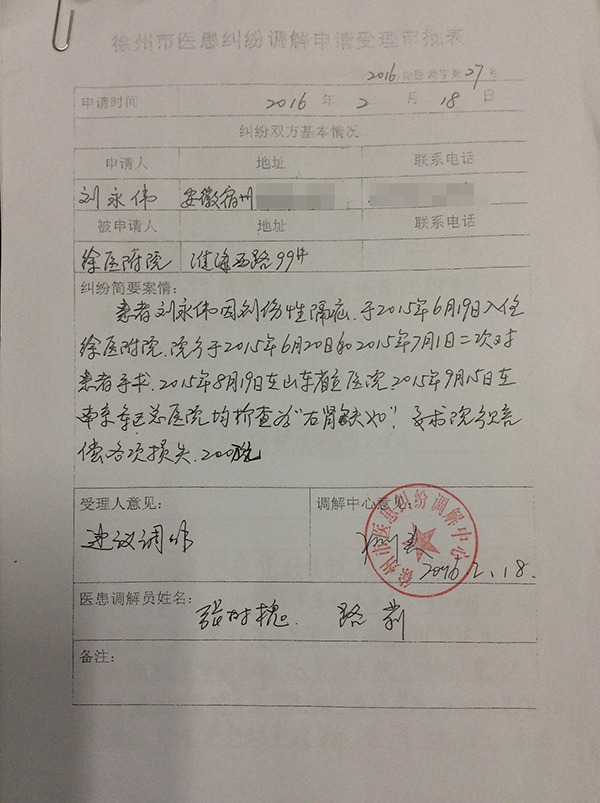 徐州市医患纠纷调解申请受理审批表
2016 徐医调字第27号
申请时间 2016 年 2 月 18 日
纠纷双方基本情况
申请人 地址 联系电话
刘永伟 安徽宿州
被申请人 地址 联系电话
徐医附院 淮海西路99#
纠纷简要案情:
患者刘永伟因创伤性隔疝.于2015年6月19日入住
徐医附院.院方于2015年6月20日和2015年7月1日二次对
患者手术.2015年8月19日在山东省立医院.2015年9月15日在
南京军区总医院均检查为“右肾缺如”.要求院方赔
偿各项损失.200万元
受理人意见: 调解中心意见:
建议调解
徐州市医患纠纷调解中心
2016.2.18.
医患调解员姓名:
张时槐. 路
备注: